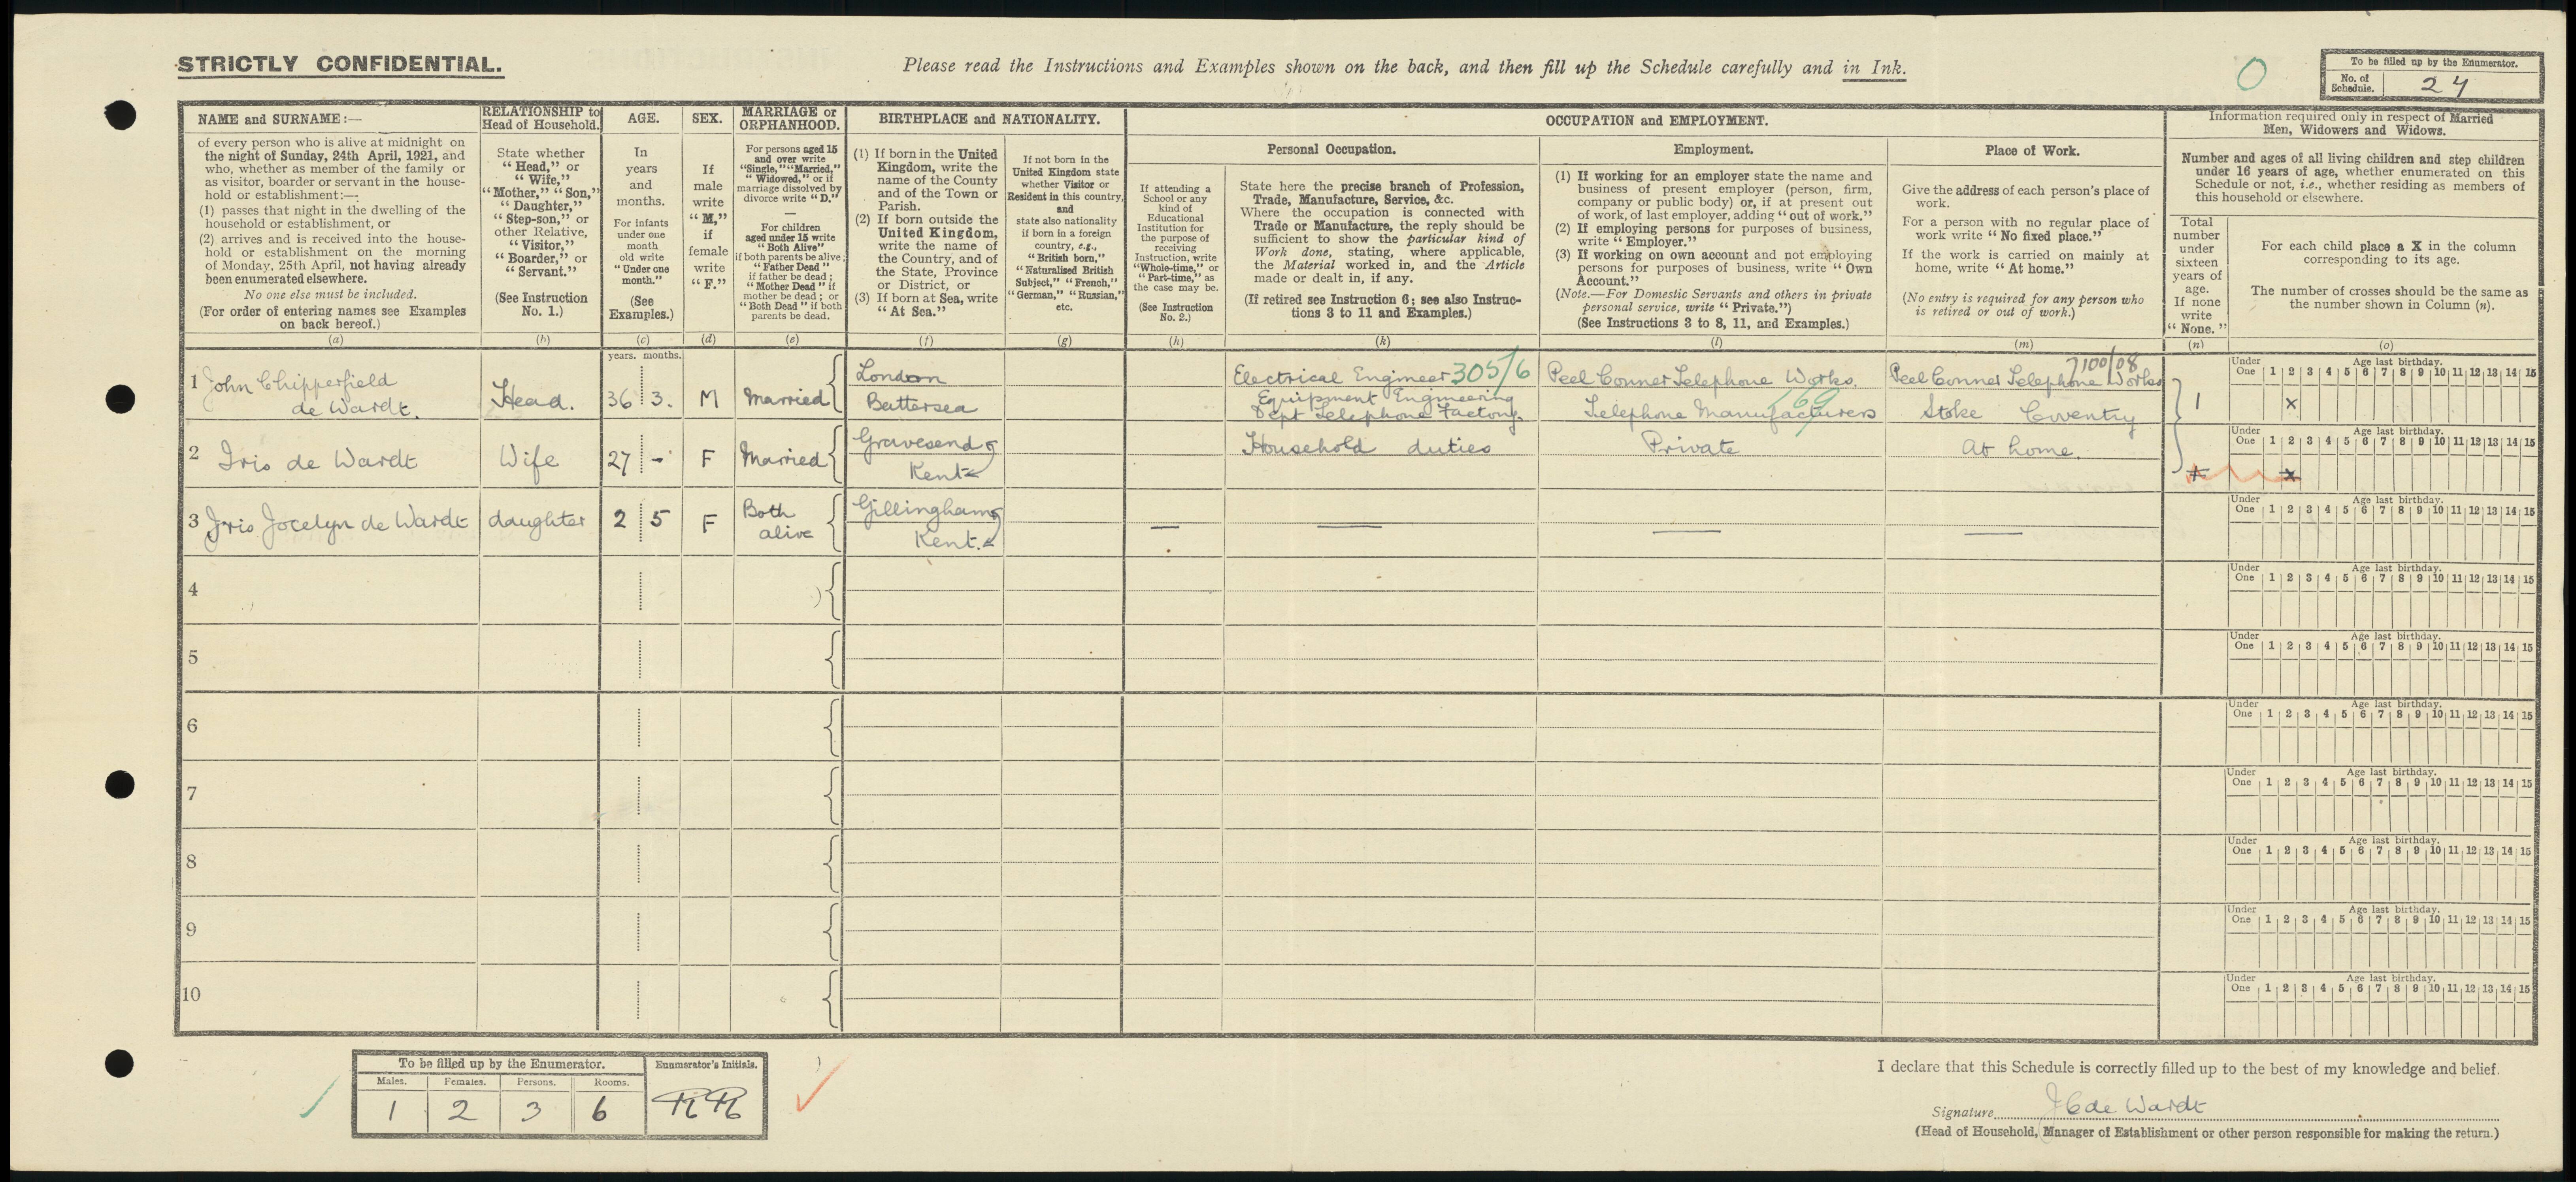 STRICTLY CONFIDENTIAL.
Please read the Instructions and Examples shown on the back, and then fill up the Schedule carefully and in Ink.
O
To be filled up by the Enumerator.
No. of Schedule. 24
NAME and SURNAME:—
of every person who is alive at midnight on
the night of Sunday, 24th April, 1921, and
who, whether as member of the family or
as visitor, boarder or servant in the house-
hold or establishment:—
(1) passes that night in the dwelling of the
household or establishment, or
(2) arrives and is received into the house-
hold or establishment on the morning
of Monday, 25th April, not having already
been enumerated elsewhere.
No one else must be included.
(For order of entering names see Examples
on back hereof.)
(a)
RELATIONSHIP to
Head of Household.
State whether
"Head," or
"Wife,"
"Mother," "Son,"
"Daughter,"
"Step-son," or
other Relative,
"Visitor,"
"Boarder," or
"Servant."
(See Instruction
No. 1.)
(b)
AGE.
In
years
and
months.
For infants
under one
month
old write
"Under one
month."
(See
Examples.)
(c)
SEX.
If
male
write
"M,"
if
female
write
"F."
(d)
MARRIAGE or
ORPHANHOOD.
For persons aged 15
and over write
"Single," "Married,"
"Widowed," or if
marriage dissolved by
divorce write "D."
—
For children
aged under 15 write
"Both Alive"
if both parents be alive;
"Father Dead"
if father be dead;
"Mother Dead" if
mother be dead; or
"Both Dead" if both
parents be dead.
(e)
BIRTHPLACE and NATIONALITY.
(1) If born in the United
Kingdom, write the
name of the County
and of the Town or
Parish.
(2) If born outside the
United Kingdom,
write the name of
the Country, and of
the State, Province
or District, or
(3) If born at Sea, write
"At Sea."
(f)
If not born in the
United Kingdom state
whether Visitor or
Resident in this country,
and
state also nationality
if born in a foreign
country, e.g.,
"British born,"
"Naturalised British
Subject," "French,"
"German," "Russian,"
etc.
(g)
OCCUPATION and EMPLOYMENT.
If attending a
School or any
kind of
Educational
Institution for
the purpose of
receiving
Instruction, write
"Whole-time," or
"Part-time," as
the case may be.
(See Instruction
No. 2.)
(h)
Personal Occupation.
State here the precise branch of Profession,
Trade, Manufacture, Service, &c.
Where the occupation is connected with
Trade or Manufacture, the reply should be
sufficient to show the particular kind of
Work done, stating, where applicable,
the Material worked in, and the Article
made or dealt in, if any.
(If retired see Instruction 6; see also Instruc-
tions 3 to 11 and Examples.)
(k)
Employment.
(1) If working for an employer state the name and
business of present employer (person, firm,
company or public body) or, if at present out
of work, of last employer, adding "out of work."
(2) If employing persons for purposes of business,
write "Employer."
(3) If working on own account and not employing
persons for purposes of business, write "Own
Account."
(Note.—For Domestic Servants and others in private
personal service, write "Private.")
(See Instructions 3 to 8, 11, and Examples.)
(l)
Place of Work.
Give the address of each person's place of
work.
For a person with no regular place of
work write "No fixed place."
If the work is carried on mainly at
home, write "At home."
(No entry is required for any person who
is retired or out of work.)
(m)
Information required only in respect of Married
Men, Widowers and Widows.
Number and ages of all living children and step children
under 16 years of age, whether enumerated on this
Schedule or not, i.e., whether residing as members of
this household or elsewhere.
Total
number
under
sixteen
years of
age.
If none
write
"None."
(n)
For each child place a X in the column
corresponding to its age.
The number of crosses should be the same as
the number shown in Column (n).
(o)
years. months.
1 John Chipperfield
de Wardt. Head. 36 3. M Married London
Battersea Electrical Engineer 305/6
Equipment Engineering
Dept Telephone Factory. Peel Conner Telephone Works.
169
Telephone Manufacturers 7100/08
Peel Conner Telephone Works
Stoke Coventry 1 x
Under One Age last birthday. 1 2 3 4 5 6 7 8 9 10 11 12 13 14 15
2 Iris de Wardt Wife 27 - F Married Gravesend
Kent Household duties Private At home. x x
Under One Age last birthday. 1 2 3 4 5 6 7 8 9 10 11 12 13 14 15
3 Iris Jocelyn de Wardt daughter 2 5 F Both
alive Gillingham
Kent. — — — —
Under One Age last birthday. 1 2 3 4 5 6 7 8 9 10 11 12 13 14 15
4
Under One Age last birthday. 1 2 3 4 5 6 7 8 9 10 11 12 13 14 15
5
Under One Age last birthday. 1 2 3 4 5 6 7 8 9 10 11 12 13 14 15
6
Under One Age last birthday. 1 2 3 4 5 6 7 8 9 10 11 12 13 14 15
7
Under One Age last birthday. 1 2 3 4 5 6 7 8 9 10 11 12 13 14 15
8
Under One Age last birthday. 1 2 3 4 5 6 7 8 9 10 11 12 13 14 15
9
Under One Age last birthday. 1 2 3 4 5 6 7 8 9 10 11 12 13 14 15
10
Under One Age last birthday. 1 2 3 4 5 6 7 8 9 10 11 12 13 14 15
To be filled up by the Enumerator.
Males. Females. Persons. Rooms.
1 2 3 6
Enumerator's Initials.
I declare that this Schedule is correctly filled up to the best of my knowledge and belief.
Signature J C de Wardt
(Head of Household, Manager of Establishment or other person responsible for making the return.)